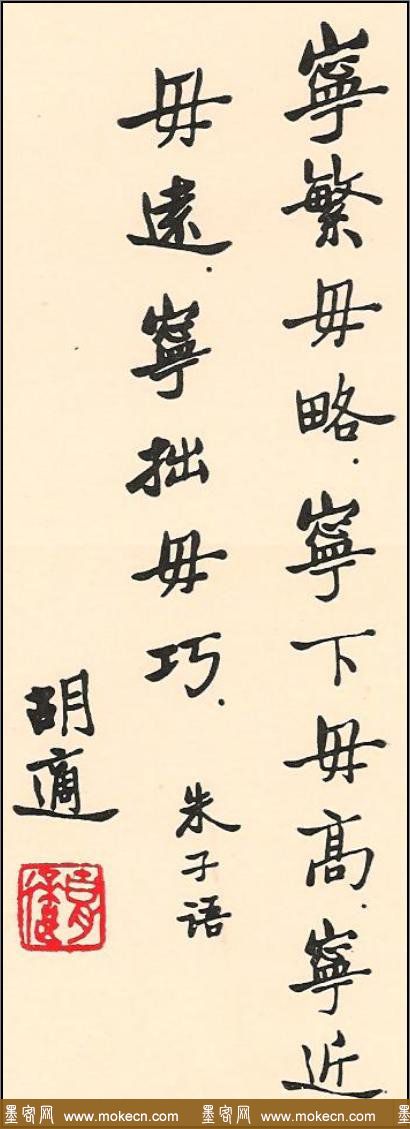 寧繁毋略.寧下毋高.寧近
毋遠.寧拙毋巧.
朱子语
胡適
墨客网 www.mokecn.com 墨客网 www.mokecn.com 墨客网